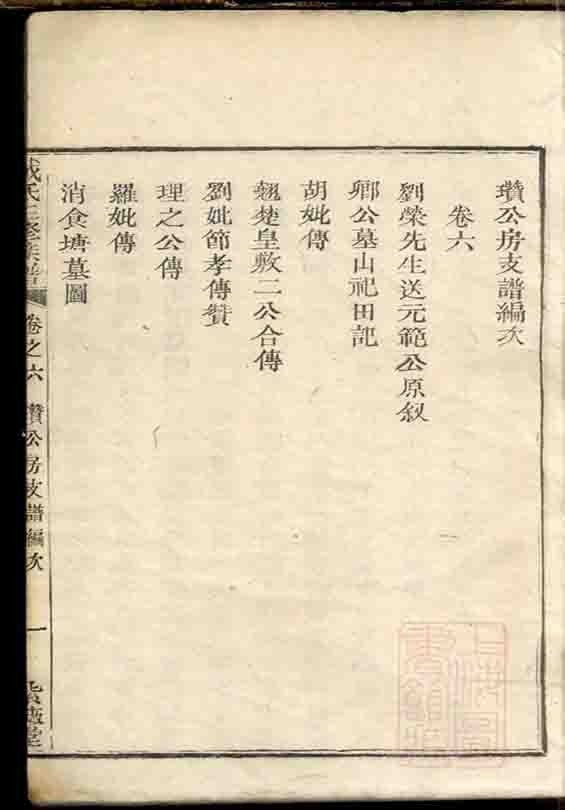 瓚公房支譜編次
卷六
劉榮先生送元範公原叙
卿公墓山祀田記
胡妣傳
翹楚皇敷二公合傳
劉妣節孝傳贊
理之公傳
羅妣傳
消食塘墓圖
氏三修族譜
卷之六
瓚公房支譜編次
一
堂
上海圖書館藏